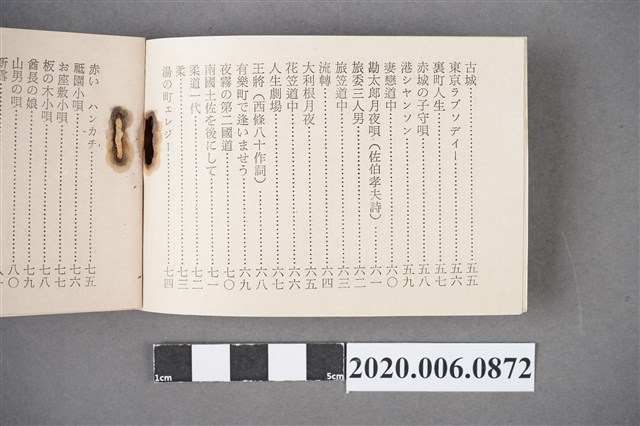 古城……………五五
東京ラプソデイー……五六
裏町人生……………五七
赤城の子守唄…………五八
港シヤンソン…………五九
妻戀道中……………六〇
勘太郎月夜唄(佐伯孝夫詩)……六一
旅委三人男……………六二
旅笠道中……………六三
流轉……………六四
大利根月夜……………六五
花笠道中……………六六
人生劇場……………六七
王將(西條八十作詞)……六八
有樂町で逢いませう……六九
夜霧の第二國道………七〇
南國土佐を後にして……七一
柔道一代……………七二
柔……………七三
湯の町エレジー………七四
赤い ハンカチ………七五
祗園小唄……………七六
お座敷小唄……………七七
板の木小唄……………七八
酋長の娘……………七九
山男の唄……………八〇
1cm
5cm
2020.006.0872